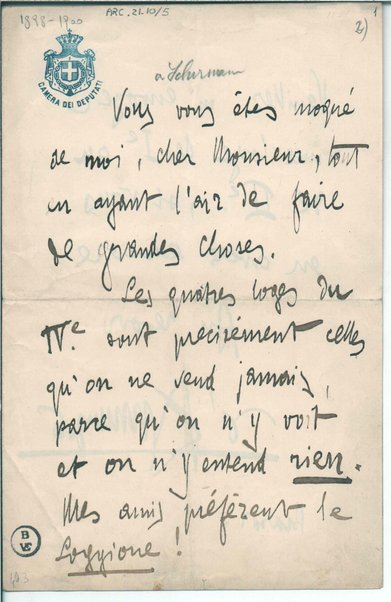 1898-1900
ARC. 21-10/5
2)
1
CAMERA DEI DEPUTATI
a Schurmann
Vous vous êtes moqué
de moi, cher Monsieur, tout
en ayant l'air de faire
de grandes choses.
Les quatres loges du
IVe sont precisément celles
qu'on ne vend jamais,
parce qu'on n'y voit
et on n'y entend rien.
Mes amis préfèrent le
Loggione !
B